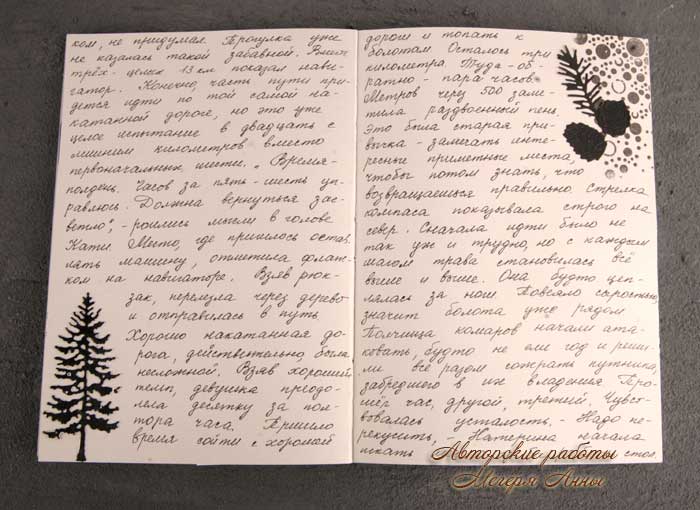 ком, не придумал. Прогулка уже
не казалась такой забавной. Вмест
трёх - целых 13 км показал нави-
гатор. Конечно, часть пути при-
дется идти по той самой на-
катанной дороге, но это уже
целое испытание в двадцать с
лишним километров вместо
первоначальных шести. „ Время-
полдень. Часов за пять-шесть уп-
равлюсь. Должна вернуться зас-
ветло", - роились мысли в голове
Кати. Место, где пришлось остав
лять машину, отметила флаж-
ком на навигаторе. Взяв рюк-
зак, перелезла через дерево
и отправилась в путь
Хорошо накатанная до-
рога, действительно, была
несложной. Взяв хороший
темп, девушка преодо-
лела десятку за пол-
тора часа. Пришло
время сойти с хорошей
дороги и топать к
болотам. Осталось три
километра. Туда - об-
ратно - пара часов.
Метров через 500 заме-
тила раздвоенный пень.
Это была старая при-
вычка - замечать инте-
ресные приметные места,
чтобы потом знать, что
возвращаешься правильно. Стрелка
компаса показывала строго на
север. Сначала идти было не
так уж и трудно, но с каждым
шагом трава становилась всё
выше и выше. Она будто цеп-
лялась за ноги. Повеяло сыростью,
значит болота уже рядом.
Полчища комаров начали ата-
ковать, будто не ели год и реши-
ли всё разом сожрать путника,
забредшего в их владения. Про-
шёл час, другой, третий. Чувст-
вовалась усталость. - Надо пе-
рекусить, - Катерина начала
искать стол.
Авторские работы
Мегеря Анны